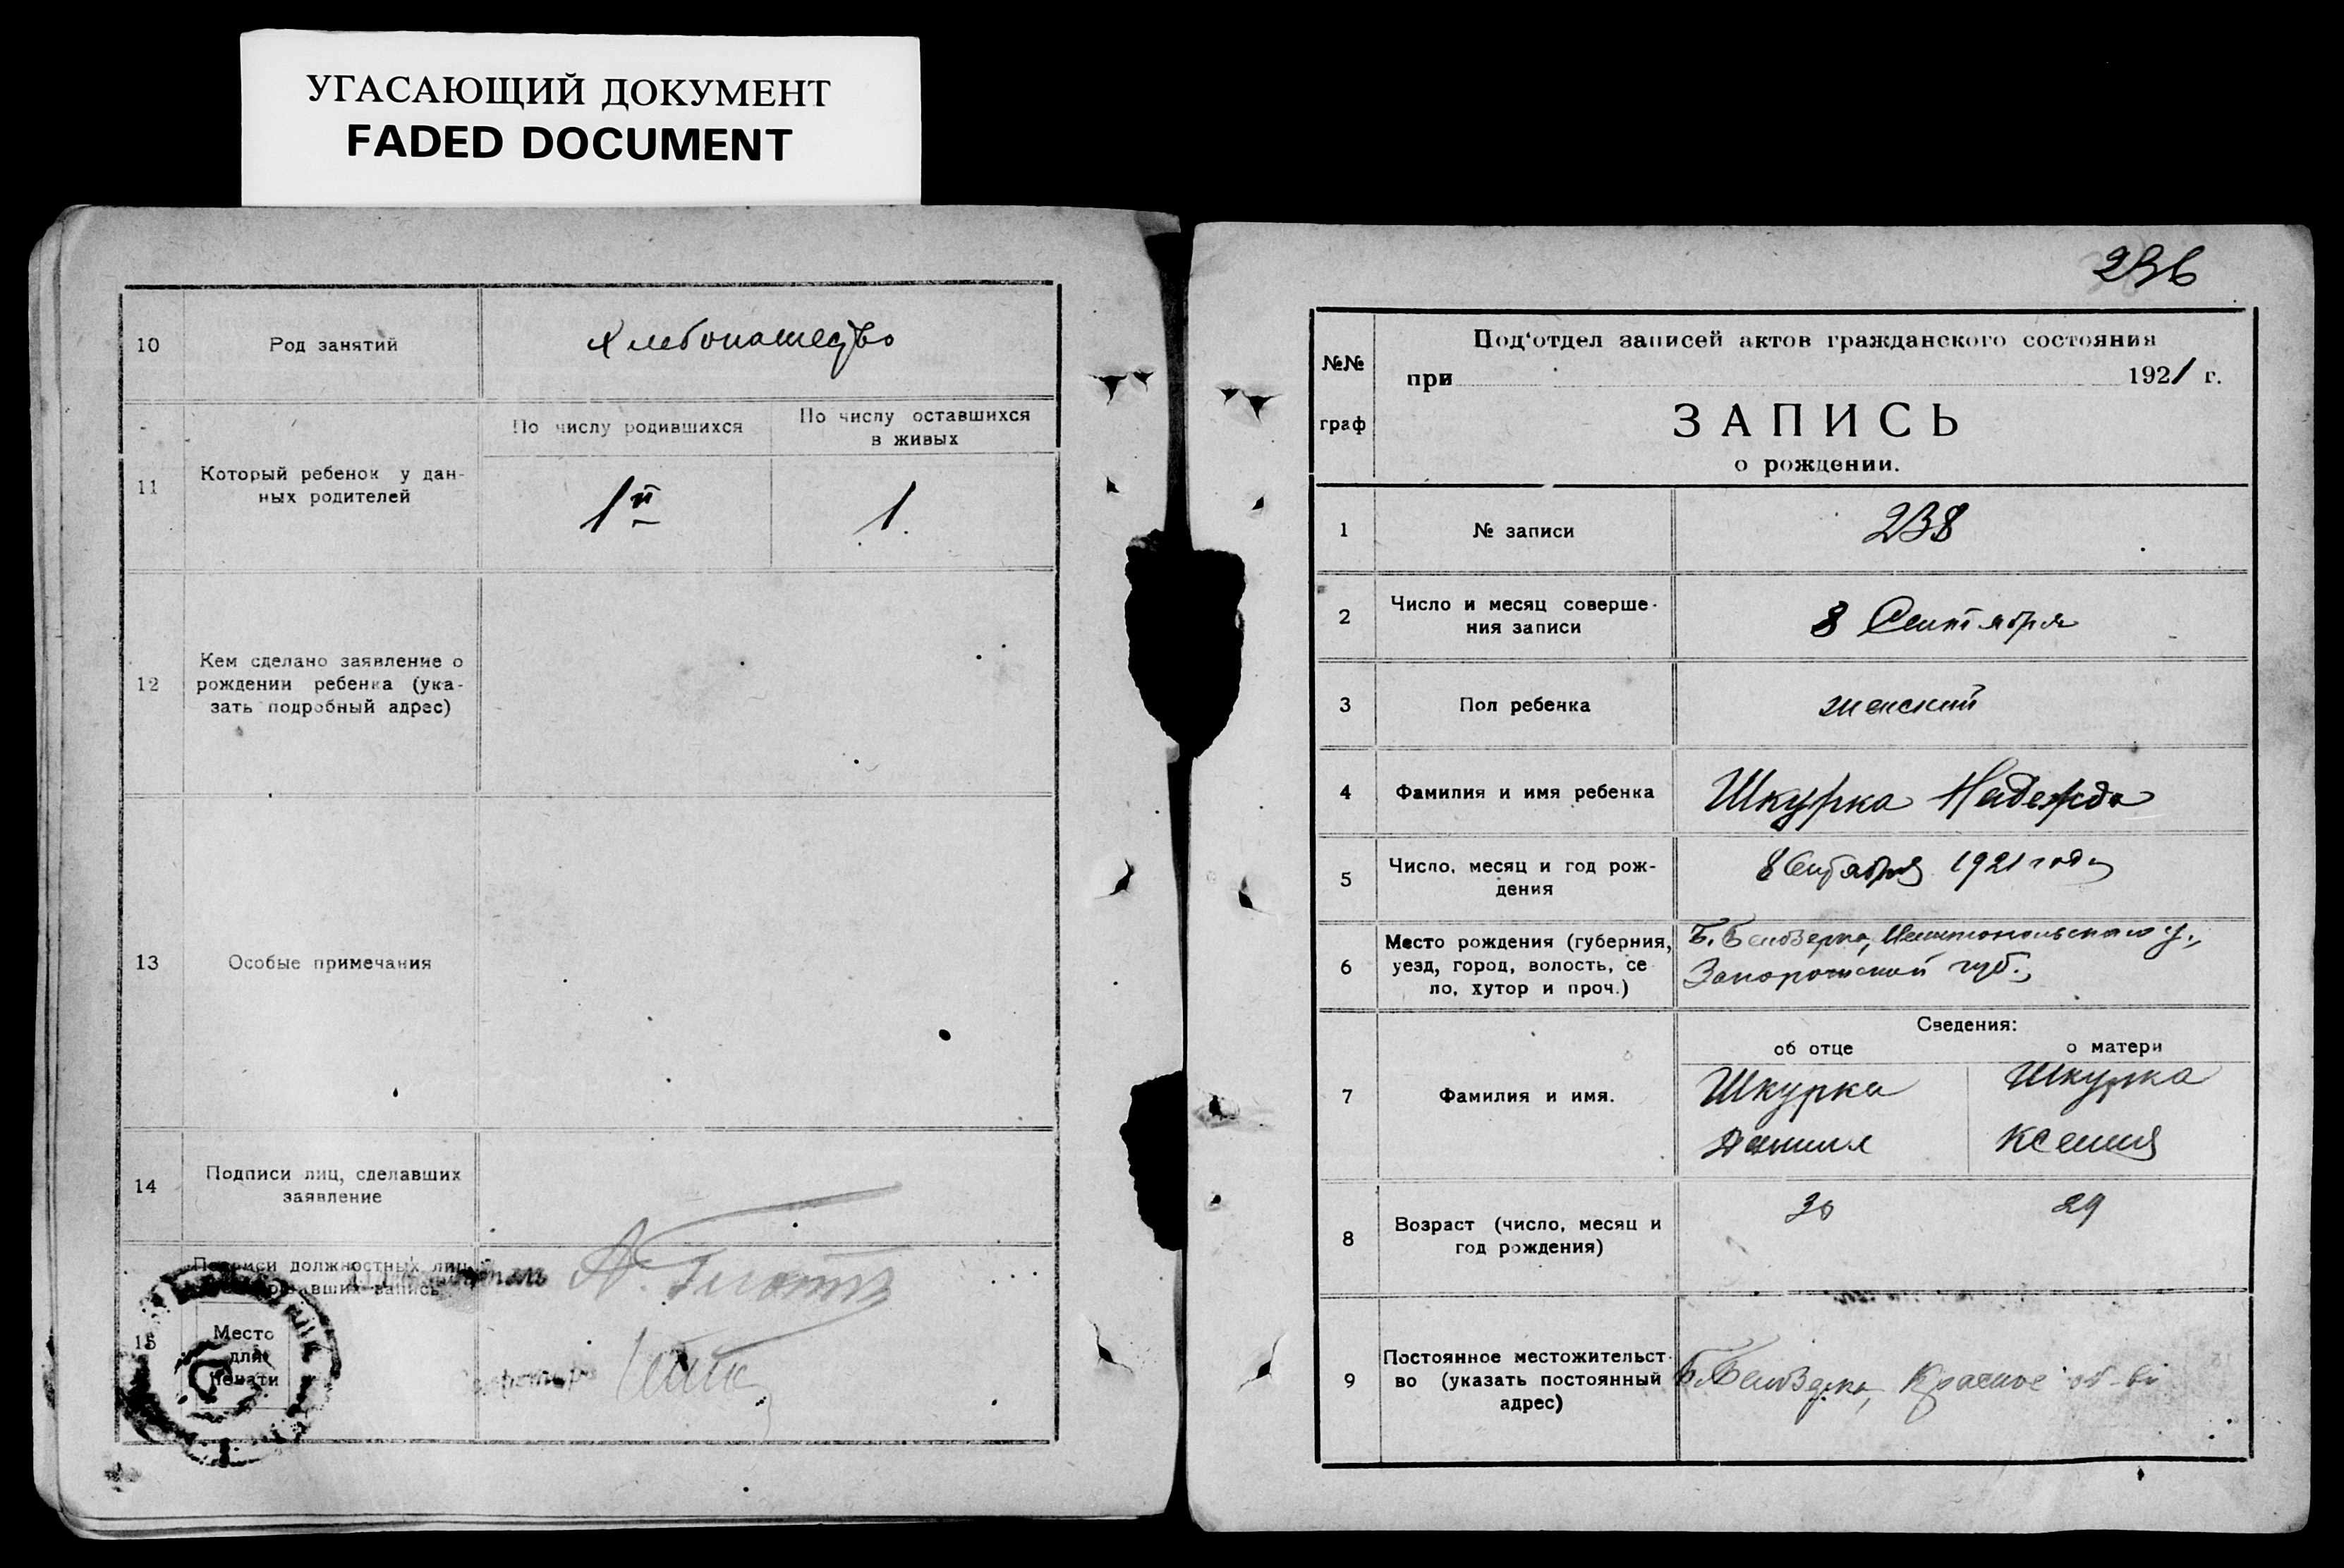 УГАСАЮЩИЙ ДОКУМЕНТ
FADED DOCUMENT
10
Род занятий
Хлебопашество
11
Который ребенок у дан-
ных родителей
По числу родившихся
По числу оставшихся
в живых
1й
1.
12
Кем сделано заявление о
рождении ребенка (ука-
зать подробный адрес)
13
Особые примечания
14
Подписи лиц, сделавших
заявление
15
Подписи должностных лиц,
запись
Место
для
печати
236
№№
граф
Под'отдел записей актов гражданского состояния
при 1921 г.
ЗАПИСЬ
о рождении.
1
№ записи
238
2
Число и месяц соверше-
ния записи
8 Сентября
3
Пол ребенка
женский
4
Фамилия и имя ребенка
Шкурка Надежда
5
Число, месяц и год рож-
дения
8 Сентября 1921 года
6
Место рождения (губерния,
уезд, город, волость, се
ло, хутор и проч.)
Б. Белозерка, Мелитопольского у.,
Запорожской губ.,
Сведения:
об отце
о матери
7
Фамилия и имя.
Шкурка
Даниил
Шкурка
Ксения
8
Возраст (число, месяц и
год рождения)
30
29
9
Постоянное местожительст-
во (указать постоянный
адрес)
Б. Белозерка, Красное об-во